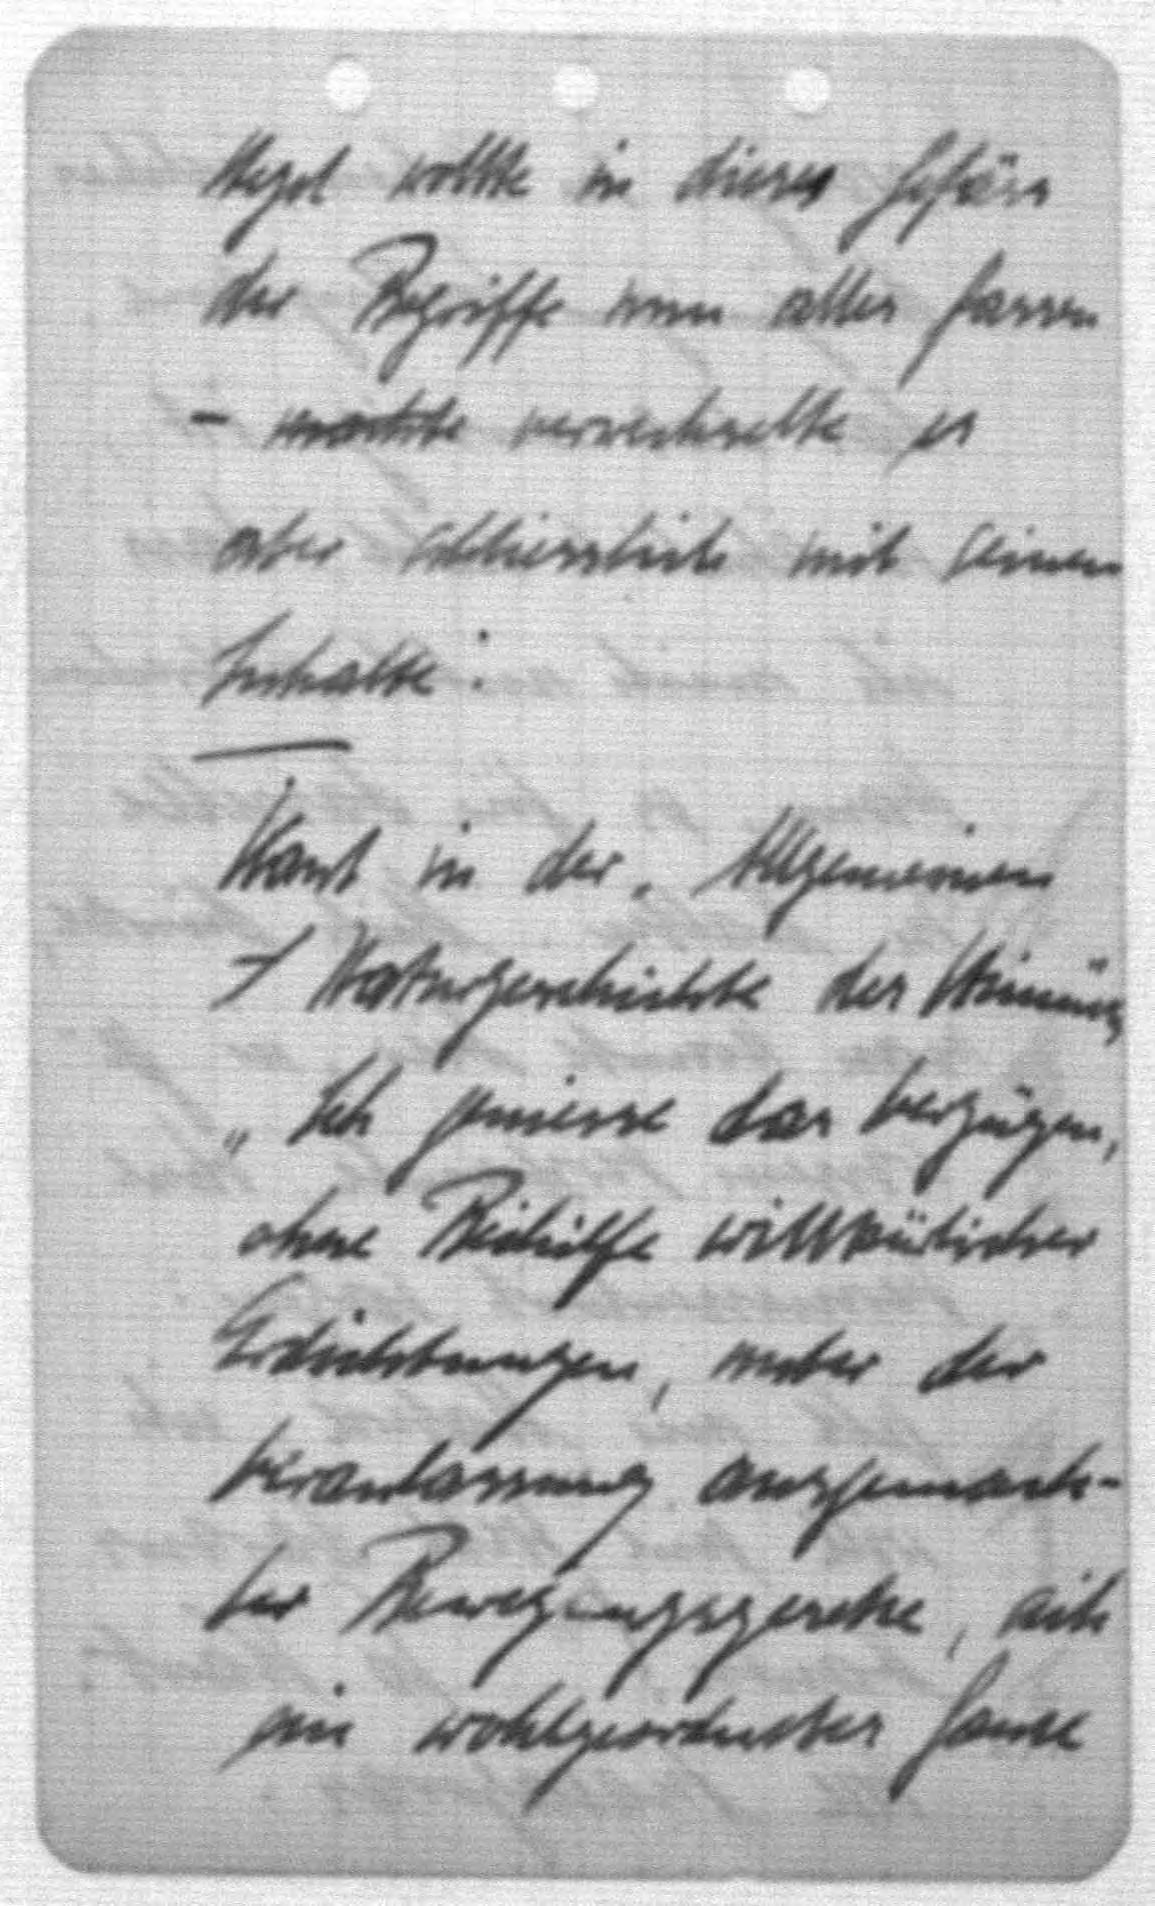 Hegel wollte in dieses Gefäss
der Begriffe nun alles fassen
– verwechselte es
aber schliesslich mit seinem
Inhalte:
Kant in der „Allgemeinen
Naturgeschichte des Himmels
„Ich geniesse das Vergnügen,
ohne Beihülfe willkürlicher
Erdichtungen, unter der
Veranlassung ausgemach-
ter Bewegungsgesetze, sich
ein wohlgeordnetes Ganze